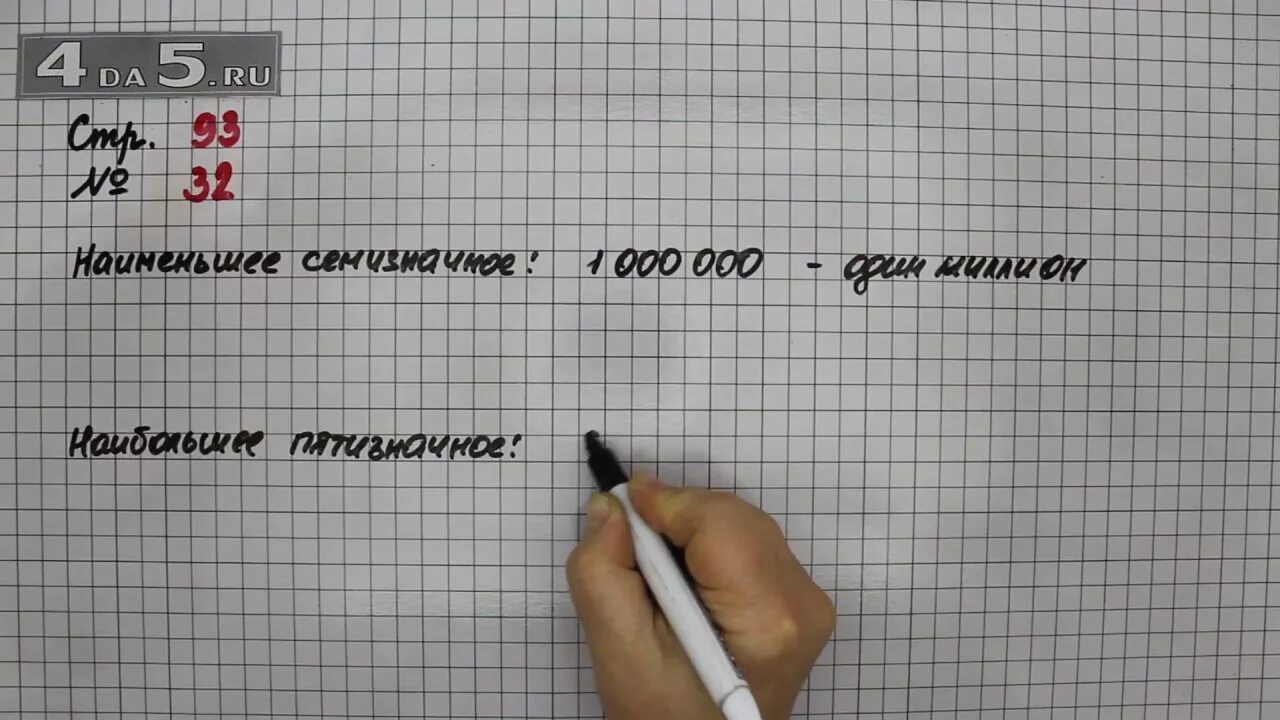 4DA5.RU
Стр. 93
№ 32
Наименьшее семизначное: 1 000 000 - один миллион
Наибольшее пятизначное: